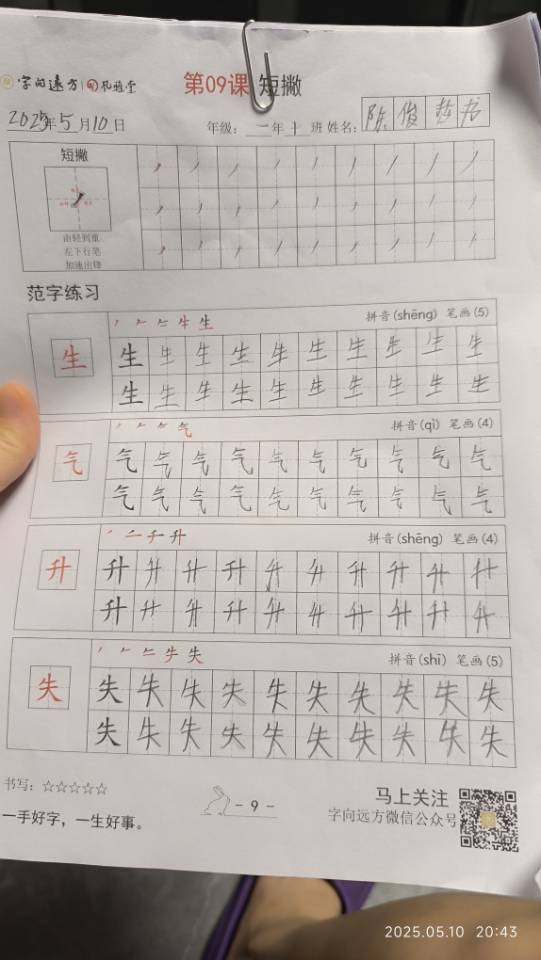 字向远方 砚雅堂 第09课 短撇
2025年5月10日 年级: 一年十班 姓名: 陈俊
短撇
由轻到重
左下行笔
加速出锋
范字练习
拼音(shēng) 笔画(5)
生 生 生 生 生 生 生 生 生 生 生
生 生 生 生 生 生 生 生 生 生
拼音(qì) 笔画(4)
气 气 气 气 气 气 气 气 气 气 气
气 气 气 气 气 气 气 气 气 气
拼音(shēng) 笔画(4)
升 升 升 升 升 升 升 升 升 升 升
升 升 升 升 升 升 升 升 升 升
拼音(shī) 笔画(5)
失 失 失 失 失 失 失 失 失 失 失
失 失 失 失 失 失 失 失 失 失
书写: ☆☆☆☆☆
- 9 -
马上关注
字向远方微信公众号
一手好字，一生好事。
2025.05.10 20:43